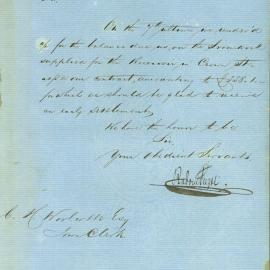 On the 9th Ultimo we
for the balance due us, on the Ironwork
supplied for the Reservoir in Crown St
as per our contract, amounting to
for which we should be glad to receive
an early settlement,
We have the honor to be
Sir,
Your Obedient Servants
C. H. Woolcott Esq
Town Clerk